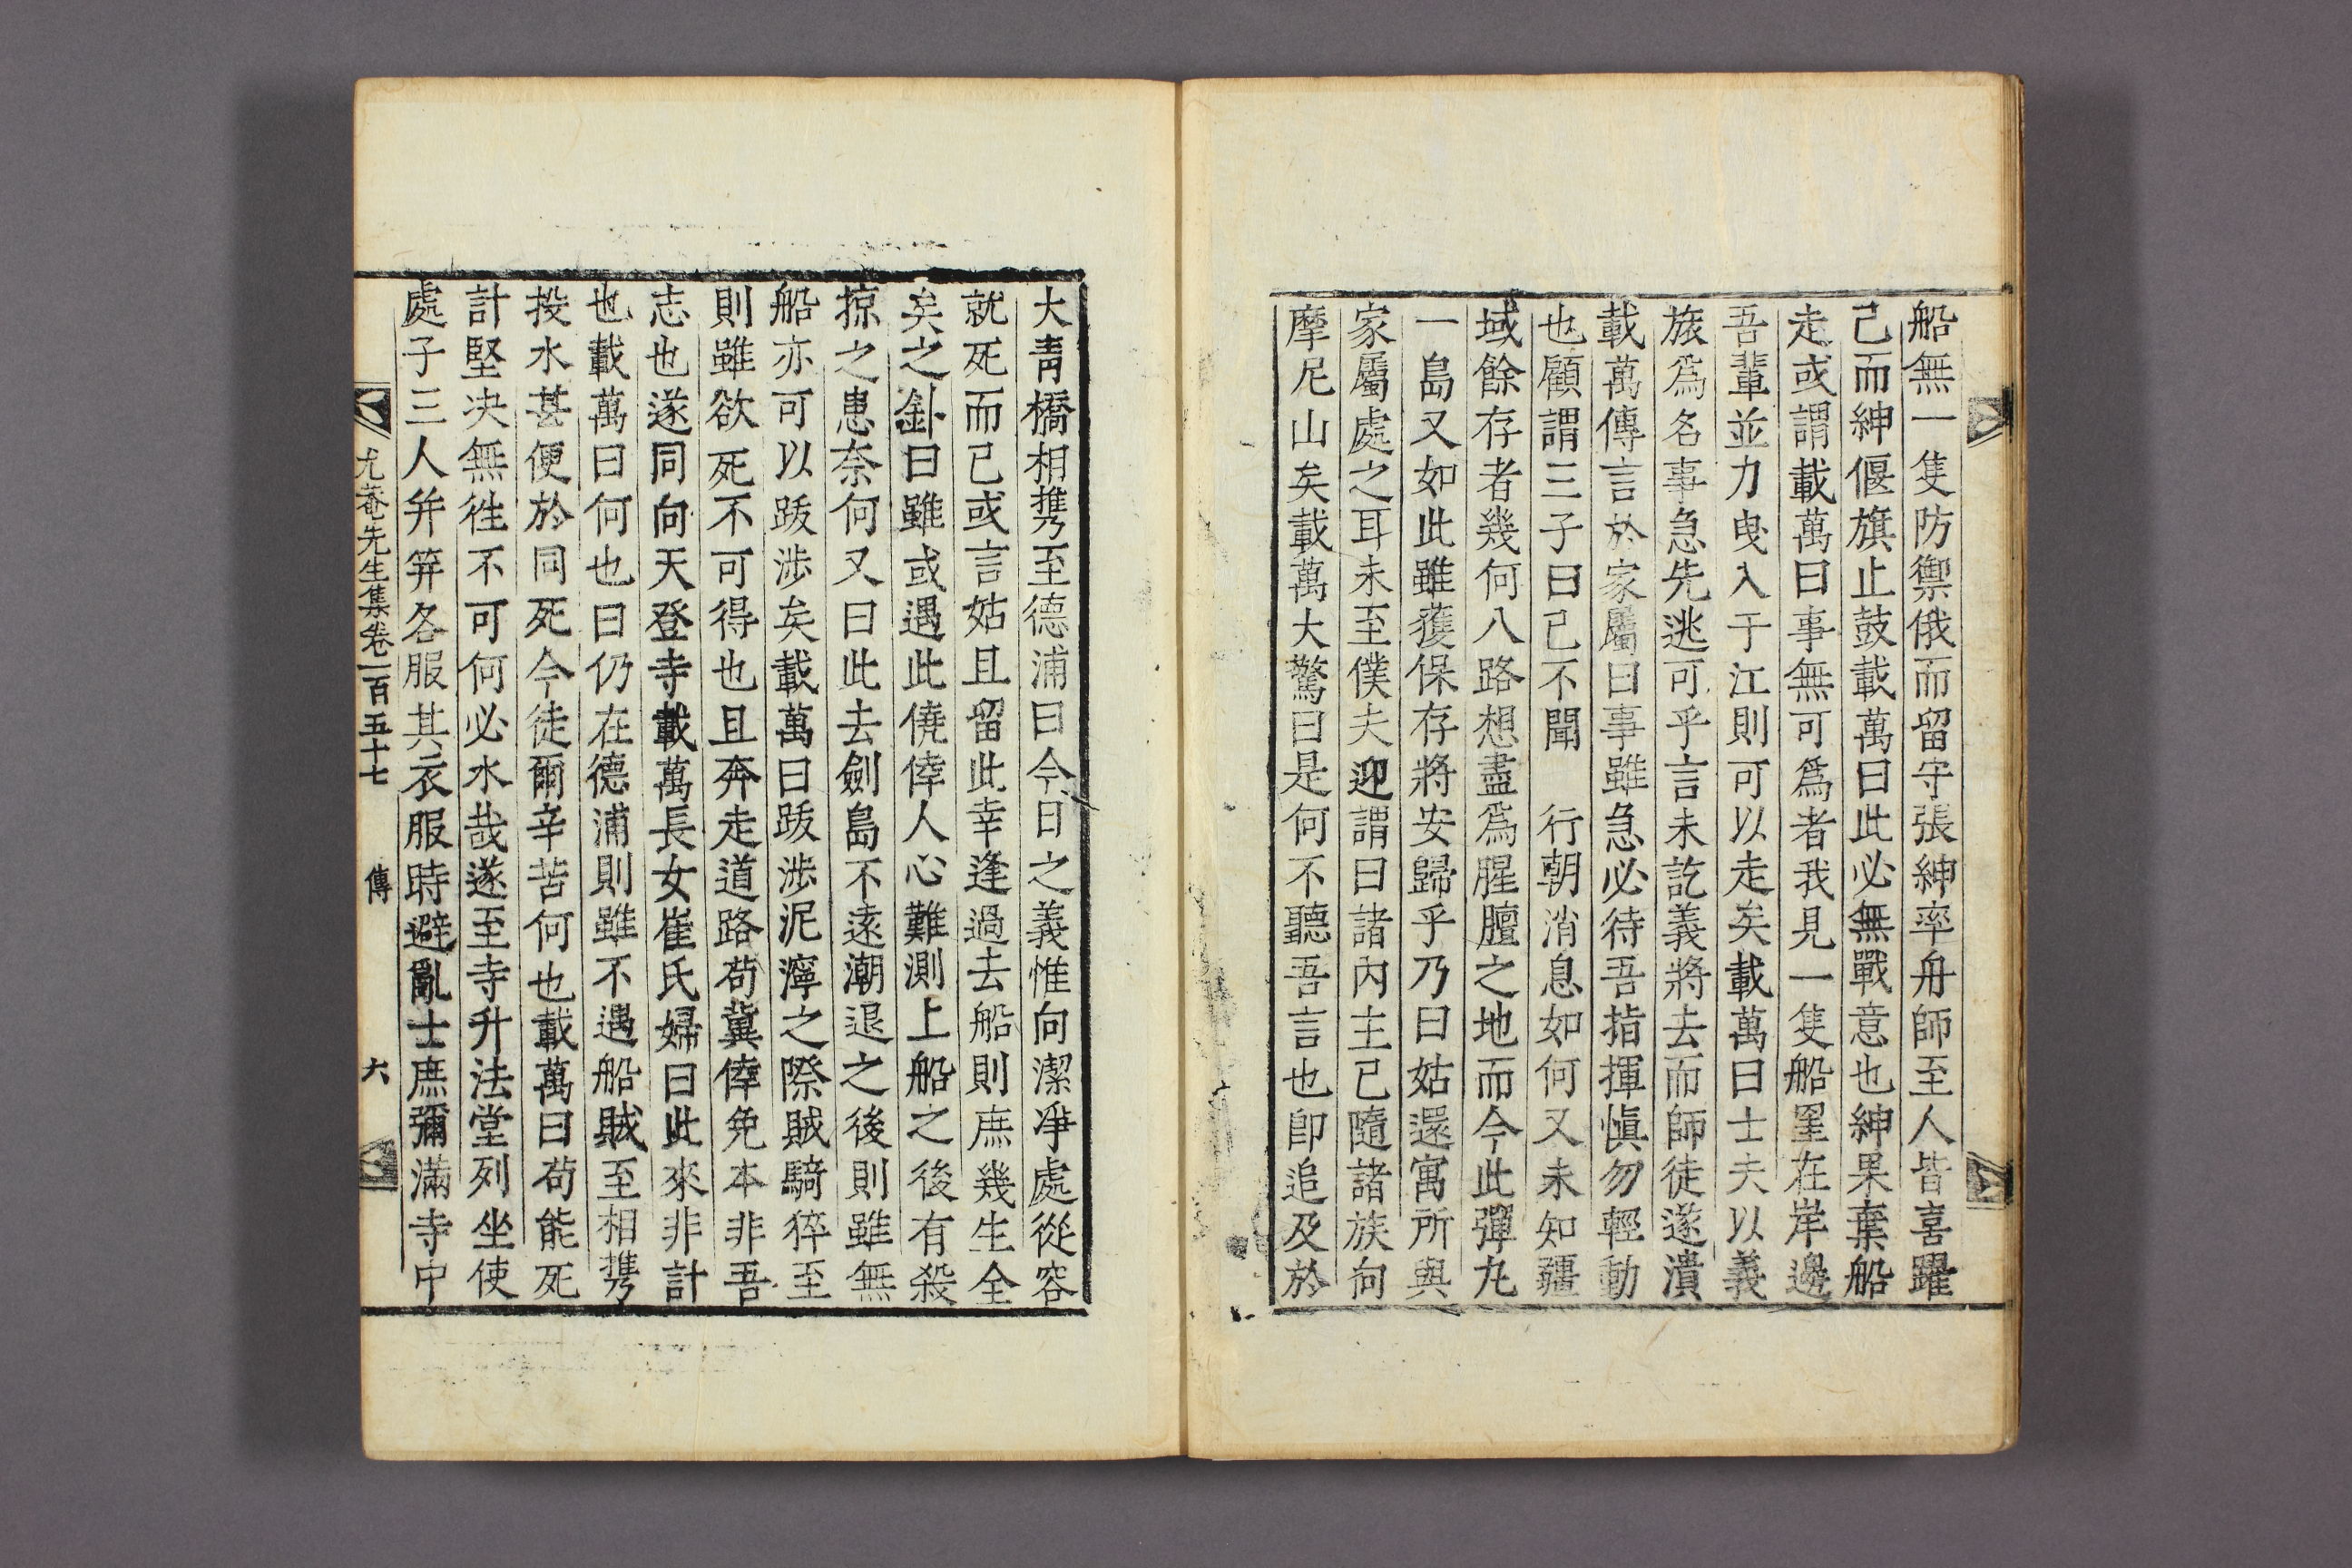 船無一隻防禦俄而留守張紳率舟師至人皆喜躍
已而紳偃旗止鼓載萬曰此必無戰意也紳果棄船
走或謂載萬曰事無可爲者我見一隻船罣在岸邊
吾輩並力曳入于江則可以走矣載萬曰士夫以義
旅爲名事急先逃可乎言未訖義將去而師徒遂潰
載萬傳言於家屬曰事雖急必待吾指揮愼勿輕動
也顧謂三子曰已不聞 行朝消息如何又未知疆
域餘存者幾何八路想盡爲腥膻之地而今此彈丸
一島又如此雖獲保存將安歸乎乃曰姑還寓所與
家屬處之耳未至僕夫迎謂曰諸內主已隨諸族向
摩尼山矣載萬大驚曰是何不聽吾言也卽追及於
大靑橋相携至德浦曰今日之義惟向潔凈處從容
就死而已或言姑且留此幸逢過去船則庶幾生全
矣之釙曰雖或遇此僥倖人心難測上船之後有殺
掠之患奈何又曰此去劍島不遠潮退之後則雖無
船亦可以跋涉矣載萬曰跋涉泥濘之際賊騎猝至
則雖欲死不可得也且奔走道路苟冀倖免本非吾
志也遂同向天登寺載萬長女崔氏婦曰此來非計
也載萬曰何也曰仍在德浦則雖不遇船賊至相携
投水甚便於同死今徒爾辛苦何也載萬曰苟能死
計堅决無徃不可何必水哉遂至寺升法堂列坐使
處子三人幷笄各服其衣服時避亂士庶彌滿寺中
尤菴先生集卷一百五十七 傳 六